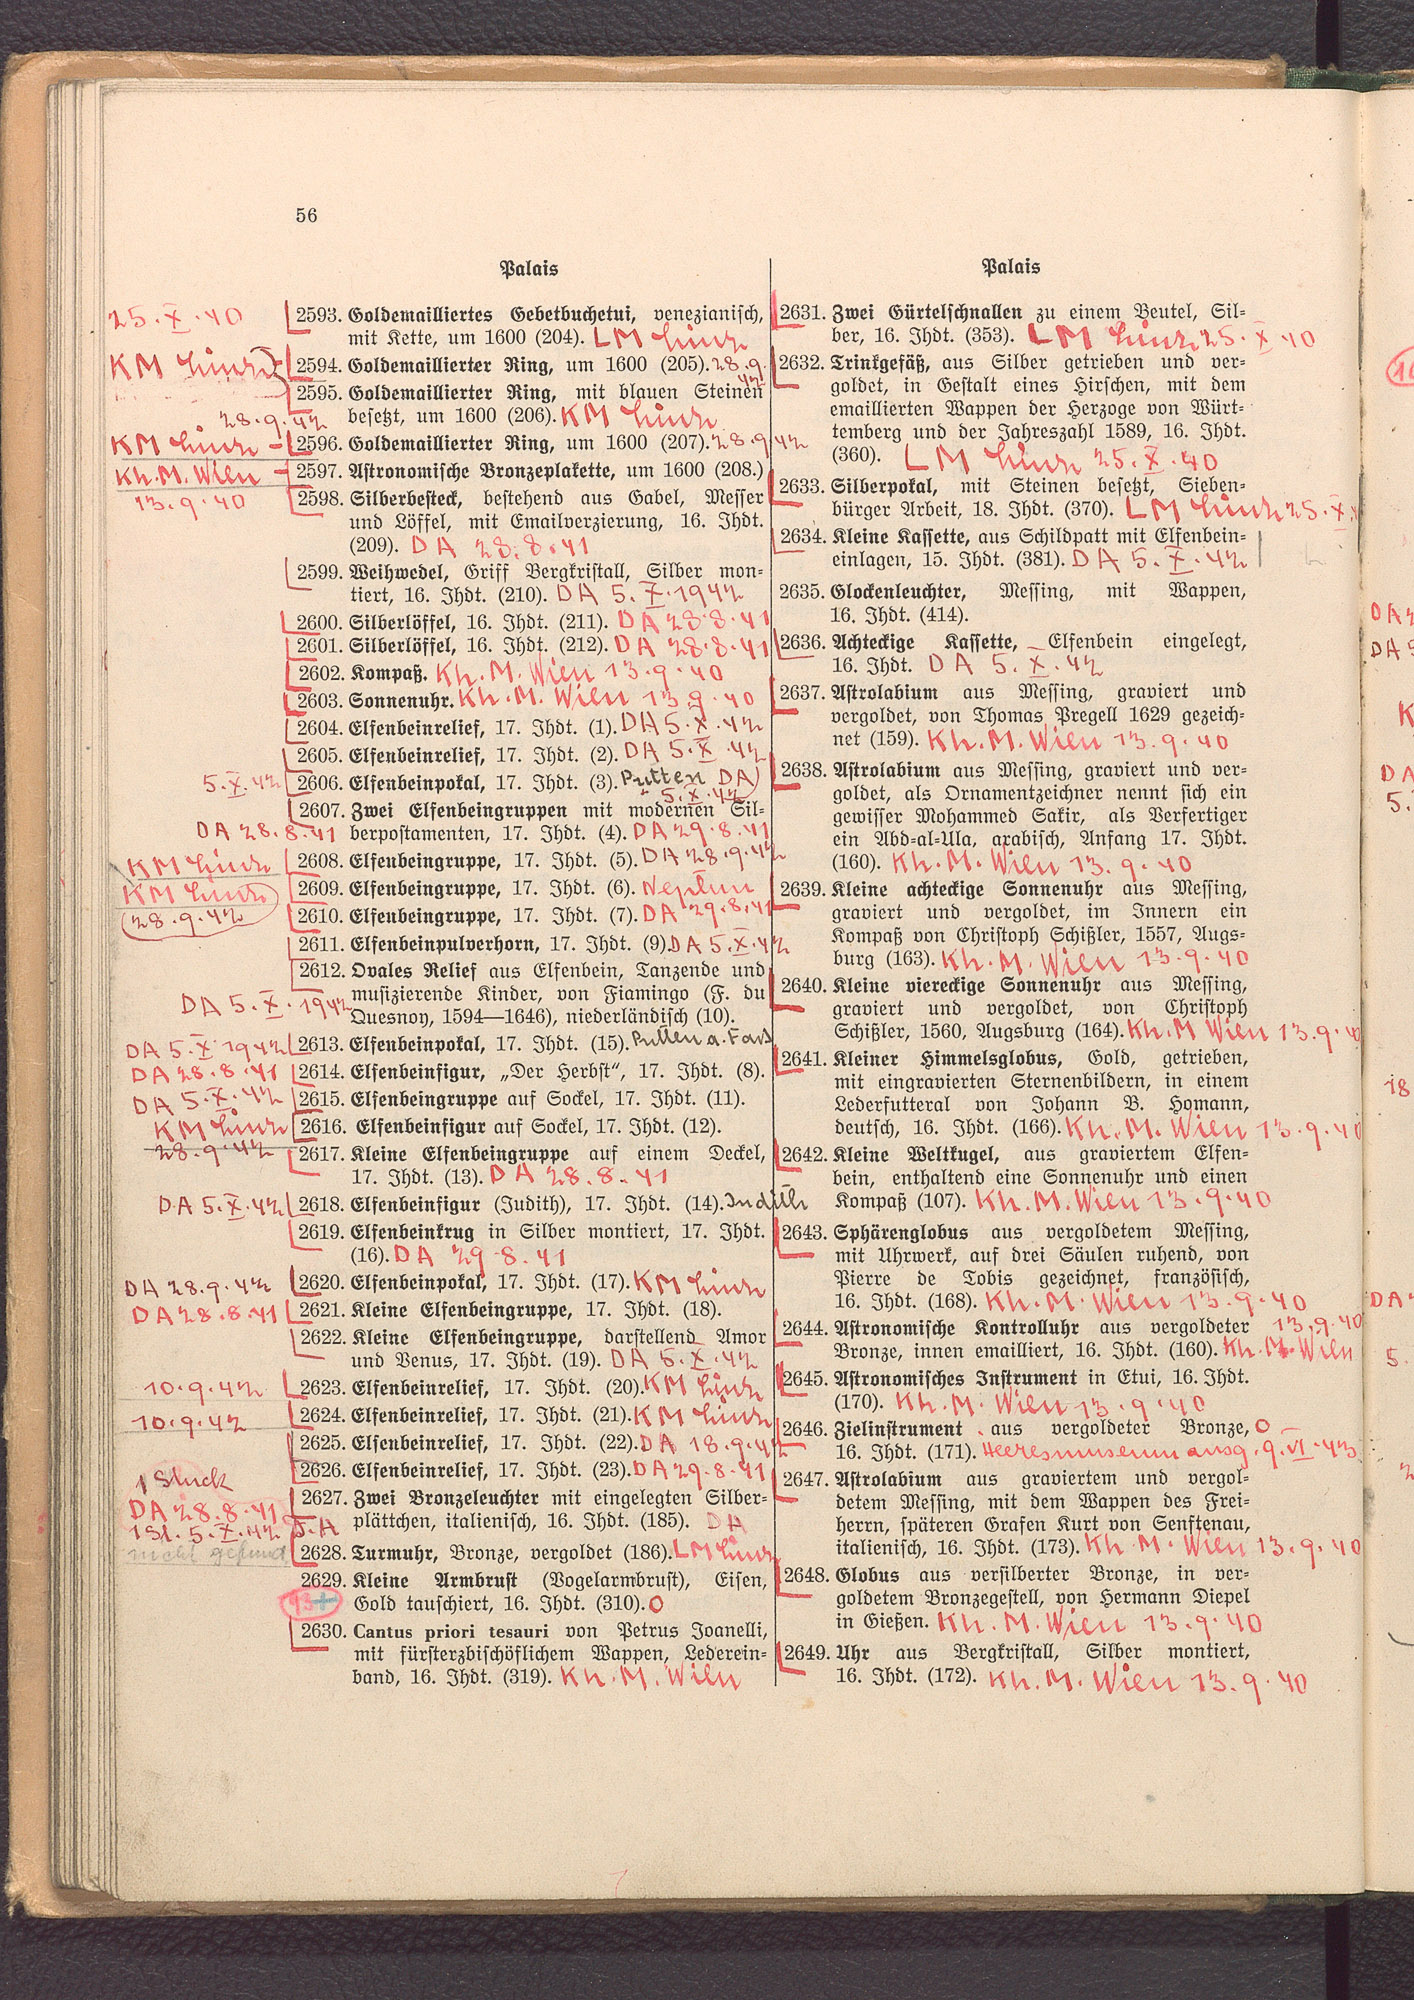 56
Palais
25.X.40 2593. Goldemailliertes Gebetbuchetui, venezianisch,
mit Kette, um 1600 (204). LM Linz
KM Linz 2594. Goldemaillierter Ring, um 1600 (205). 28.9.
42
2595. Goldemaillierter Ring, mit blauen Steinen
28.9.42 besetzt, um 1600 (206). KM Linz
KM Linz 2596. Goldemaillierter Ring, um 1600 (207). 28.9.42
Kh.M. Wien 2597. Astronomische Bronzeplakette, um 1600 (208.)
13.9.40 2598. Silberbesteck, bestehend aus Gabel, Messer
und Löffel, mit Emailverzierung, 16. Jhdt.
(209). DA 28.8.41
2599. Weihwedel, Griff Bergkristall, Silber mon-
tiert, 16. Jhdt. (210). DA 5.X.1942
2600. Silberlöffel, 16. Jhdt. (211). DA 28.8.41
2601. Silberlöffel, 16. Jhdt. (212). DA 28.8.41
2602. Kompaß. Kh.M. Wien 13.9.40
2603. Sonnenuhr. Kh.M. Wien 13.9.40
2604. Elfenbeinrelief, 17. Jhdt. (1). DA 5.X.42
2605. Elfenbeinrelief, 17. Jhdt. (2). DA 5.X.42
5.X.42 2606. Elfenbeinpokal, 17. Jhdt. (3). Putten DA
5.X.42
2607. Zwei Elfenbeingruppen mit modernen Sil-
DA 28.8.41 berpostamenten, 17. Jhdt. (4). DA 29.8.41
KM Linz 2608. Elfenbeingruppe, 17. Jhdt. (5). DA 28.9.42
KM Linz 2609. Elfenbeingruppe, 17. Jhdt. (6). Neptun
(28.9.42) 2610. Elfenbeingruppe, 17. Jhdt. (7). DA 29.8.41
2611. Elfenbeinpulverhorn, 17. Jhdt. (9). DA 5.X.42
2612. Ovales Relief aus Elfenbein, Tanzende und
DA 5.X.1942 musizierende Kinder, von Fiamingo (F. du
Quesnoy, 1594—1646), niederländisch (10).
DA 5.X.1942 2613. Elfenbeinpokal, 17. Jhdt. (15). Putten a. Fass
DA 28.8.41 2614. Elfenbeinfigur, „Der Herbst“, 17. Jhdt. (8).
DA 5.X.42 2615. Elfenbeingruppe auf Sockel, 17. Jhdt. (11).
KM Linz 2616. Elfenbeinfigur auf Sockel, 17. Jhdt. (12).
28.9.42 2617. Kleine Elfenbeingruppe auf einem Deckel,
17. Jhdt. (13). DA 28.8.41
DA 5.X.42 2618. Elfenbeinfigur (Judith), 17. Jhdt. (14). Judith
2619. Elfenbeinkrug in Silber montiert, 17. Jhdt.
(16). DA 29.8.41
DA 28.9.42 2620. Elfenbeinpokal, 17. Jhdt. (17). KM Linz
DA 28.8.41 2621. Kleine Elfenbeingruppe, 17. Jhdt. (18).
2622. Kleine Elfenbeingruppe, darstellend Amor
und Venus, 17. Jhdt. (19). DA 5.X.42
10.9.42 2623. Elfenbeinrelief, 17. Jhdt. (20). KM Linz
10.9.42 2624. Elfenbeinrelief, 17. Jhdt. (21). KM Linz
2625. Elfenbeinrelief, 17. Jhdt. (22). DA 18.9.42
1 Stuck 2626. Elfenbeinrelief, 17. Jhdt. (23). DA 29.8.41
DA 28.8.41 2627. Zwei Bronzeleuchter mit eingelegten Silber-
1 St. 5.X.42 D.A plättchen, italienisch, 16. Jhdt. (185). DA
nicht gefund 2628. Turmuhr, Bronze, vergoldet (186). LM Linz
2629. Kleine Armbrust (Vogelarmbrust), Eisen,
93+ Gold tauschiert, 16. Jhdt. (310). O
2630. Cantus priori tesauri von Petrus Joanelli,
mit fürsterzbischöflichem Wappen, Lederein-
band, 16. Jhdt. (319). Kh.M. Wien
Palais
2631. Zwei Gürtelschnallen zu einem Beutel, Sil-
ber, 16. Jhdt. (353). LM Linz 25.X.40
2632. Trinkgefäß, aus Silber getrieben und ver-
goldet, in Gestalt eines Hirschen, mit dem
emaillierten Wappen der Herzoge von Würt-
temberg und der Jahreszahl 1589, 16. Jhdt.
(360). LM Linz 25.X.40
2633. Silberpokal, mit Steinen besetzt, Sieben-
bürger Arbeit, 18. Jhdt. (370). LM Linz 25.X.4
2634. Kleine Kassette, aus Schildpatt mit Elfenbein-
einlagen, 15. Jhdt. (381). DA 5.X.42
2635. Glockenleuchter, Messing, mit Wappen,
16. Jhdt. (414).
2636. Achteckige Kassette, Elfenbein eingelegt,
16. Jhdt. DA 5.X.42
2637. Astrolabium aus Messing, graviert und
vergoldet, von Thomas Pregell 1629 gezeich-
net (159). Kh.M. Wien 13.9.40
2638. Astrolabium aus Messing, graviert und ver-
goldet, als Ornamentzeichner nennt sich ein
gewisser Mohammed Sakir, als Verfertiger
ein Abd-al-Ula, arabisch, Anfang 17. Jhdt.
(160). Kh.M. Wien 13.9.40
2639. Kleine achteckige Sonnenuhr aus Messing,
graviert und vergoldet, im Innern ein
Kompaß von Christoph Schißler, 1557, Augs-
burg (163). Kh.M. Wien 13.9.40
2640. Kleine viereckige Sonnenuhr aus Messing,
graviert und vergoldet, von Christoph
Schißler, 1560, Augsburg (164). Kh.M Wien 13.9.40
2641. Kleiner Himmelsglobus, Gold, getrieben,
mit eingravierten Sternenbildern, in einem
Lederfutteral von Johann B. Homann,
deutsch, 16. Jhdt. (166). Kh.M. Wien 13.9.40
2642. Kleine Weltkugel, aus graviertem Elfen-
bein, enthaltend eine Sonnenuhr und einen
Kompaß (107). Kh.M. Wien 13.9.40
2643. Sphärenglobus aus vergoldetem Messing,
mit Uhrwerk, auf drei Säulen ruhend, von
Pierre de Tobis gezeichnet, französisch,
16. Jhdt. (168). Kh.M. Wien 13.9.40
2644. Astronomische Kontrolluhr aus vergoldeter 13.9.40
Bronze, innen emailliert, 16. Jhdt. (160). Kh.M. Wien
2645. Astronomisches Instrument in Etui, 16. Jhdt.
(170). Kh.M. Wien 13.9.40
2646. Zielinstrument aus vergoldeter Bronze, O
16. Jhdt. (171). Heeresmuseum ausg. 9.VI.43
2647. Astrolabium aus graviertem und vergol-
detem Messing, mit dem Wappen des Frei-
herrn, späteren Grafen Kurt von Senftenau,
italienisch, 16. Jhdt. (173). Kh.M. Wien 13.9.40
2648. Globus aus versilberter Bronze, in ver-
goldetem Bronzegestell, von Hermann Diepel
in Gießen. Kh.M. Wien 13.9.40
2649. Uhr aus Bergkristall, Silber montiert,
16. Jhdt. (172). Kh.M. Wien 13.9.40